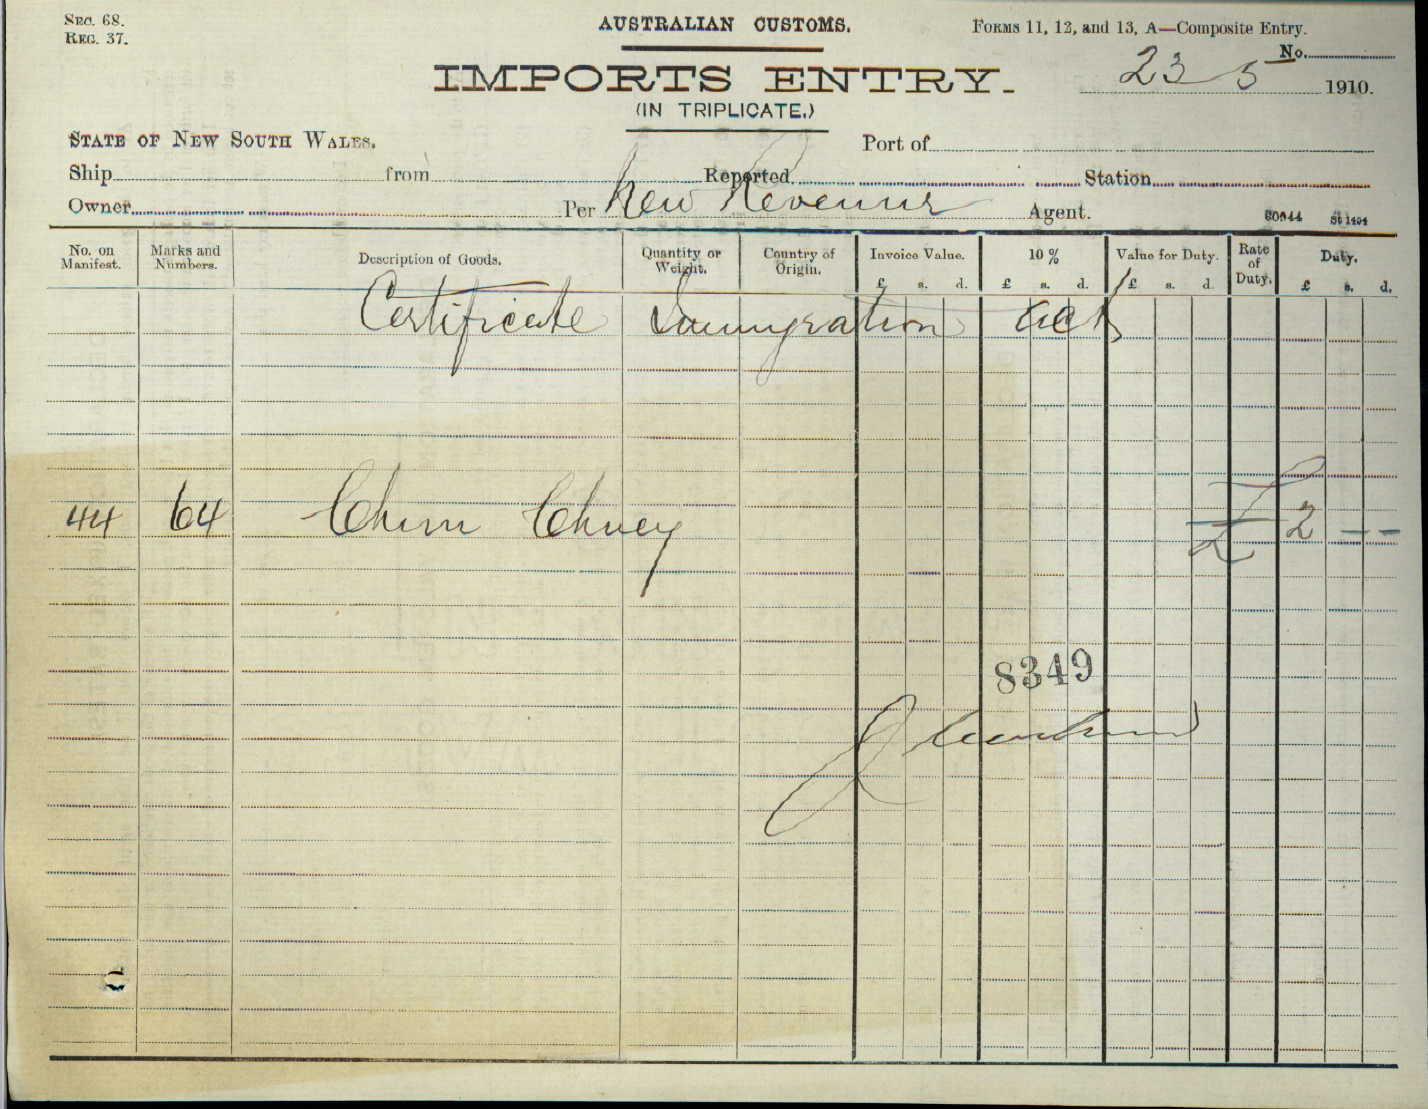 SEC. 68.
REG. 37.
AUSTRALIAN CUSTOMS.
FORMS 11, 12, and 13, A—Composite Entry.
No.
IMPORTS ENTRY.
23 5 1910.
(IN TRIPLICATE.)
STATE OF NEW SOUTH WALES.
Port of
Ship from Reported Station
Owner Per New Revenue Agent.
St 1494
No. on Manifest. Marks and Numbers. Description of Goods. Quantity or Weight. Country of Origin. Invoice Value. 10 % Value for Duty. Rate of Duty. Duty.
£ s. d. £ s. d. £ s. d. £ s. d.
Certificate Immigration Act
44 64 Chum Chuey £ 2 — —
8349